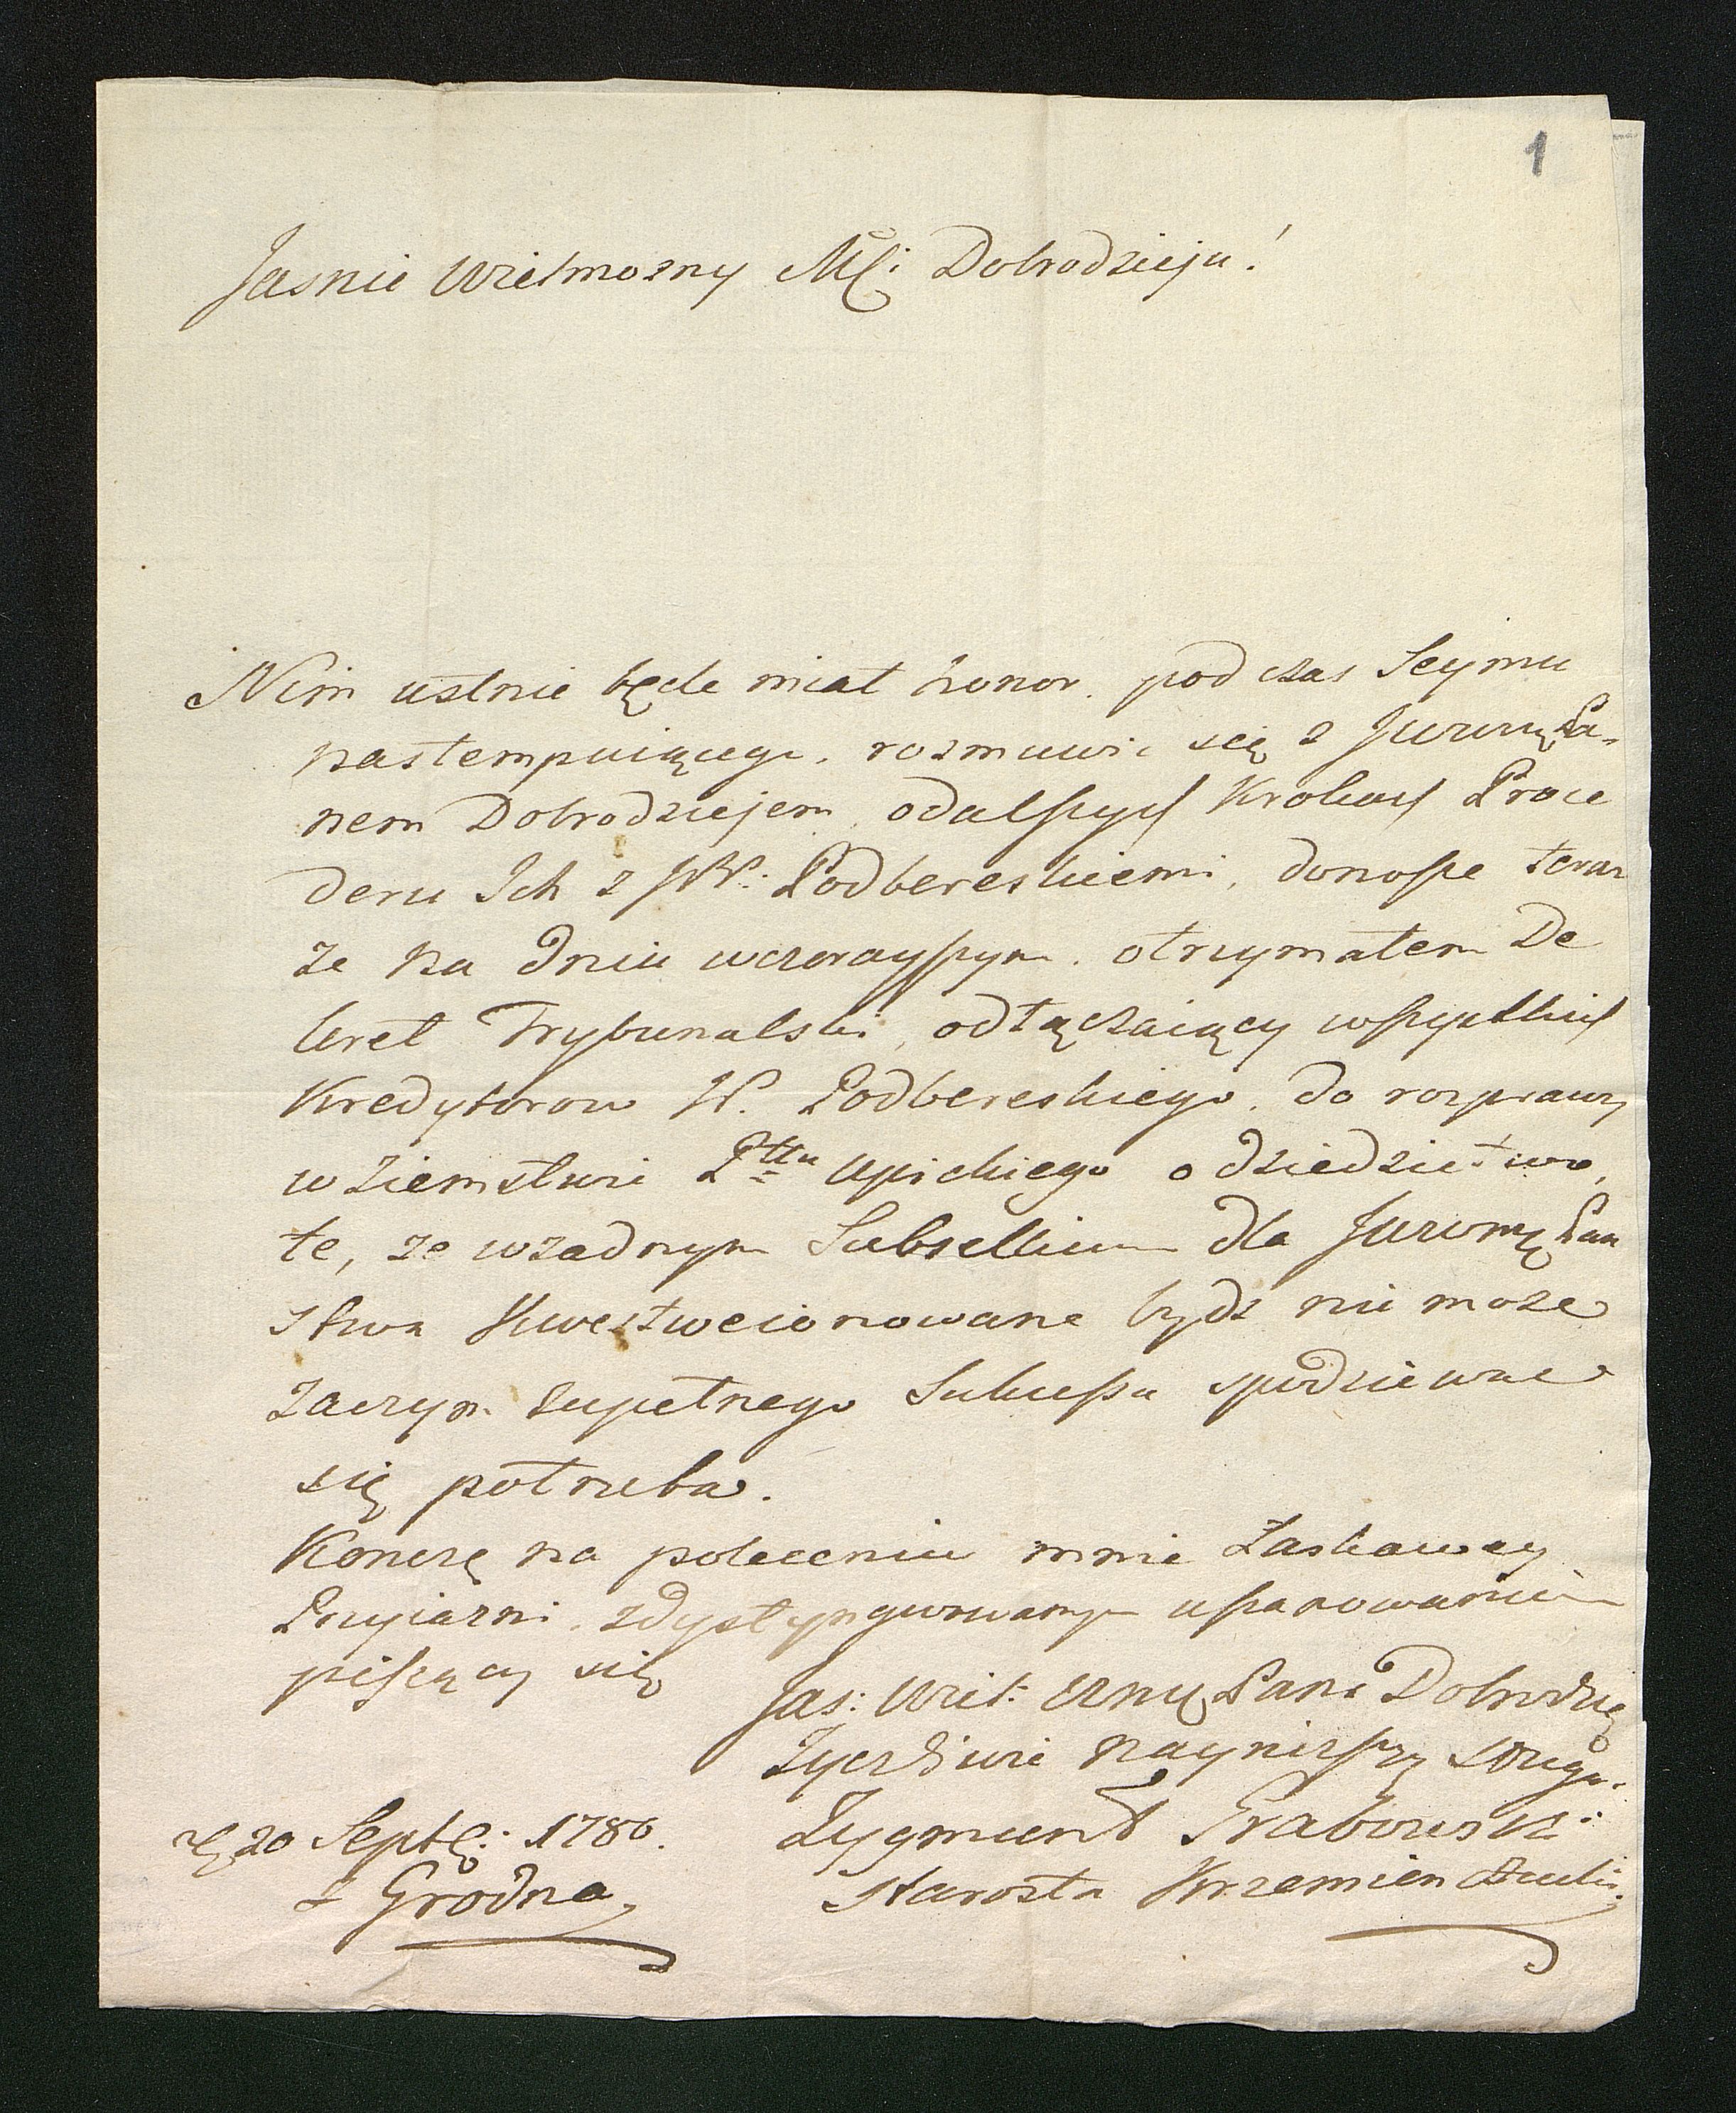 1
Jasnie Wielmozny Mći Dobrodzieju!
Nim ustnie będe miał honor. podczas Seymu
nastempuiącego. rozmuwic się z Jwwmę Pa-
nem Dobrodziejem, odalszych Krokach Proce
deru Ich z JWP: Podbereskiemi, donosze teraz
ze na dniu wczorayszym. otrzymałem De
kret Trybunalski, odłączaiący wszystkich
Kredytorow W. Podbereskiego. do rozprawy
w Ziemstwi Pttu Upickiego o dziedzictwo,
te, ze wzadnym Subsellium dla Jwwmę Pan
stwa Kwestwcionowane bydz nie moze
zaczym zupełnego Sukcessu spodziewac
się potrzeba.
Konczę na poleceniu mnie Łaskawey
Przyiazni. zdystyngwowanym uszanowaniem
piszący się
Jas: Wiel: Wmę Pana Dobrodzie
Zyczliwie naynizszy sługa.
Zygmunt Grabowski
Starosta Krzemienczucki
20 Septę: 1786.
z Grodna